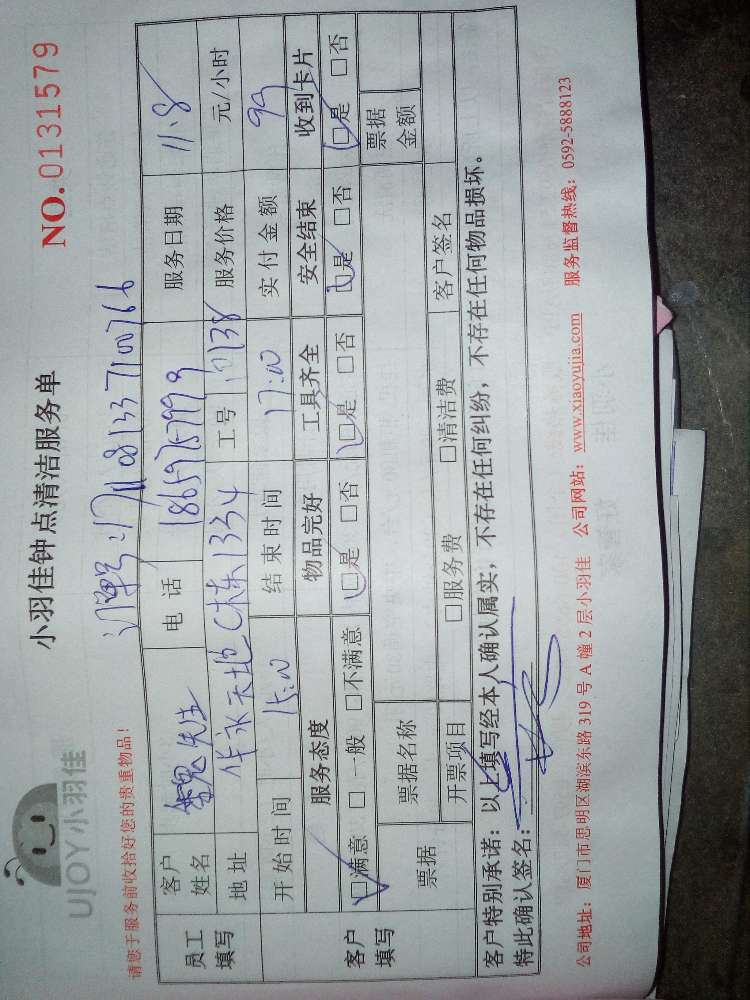 UJOY小羽佳
小羽佳钟点清洁服务单
NO.0131579
请您于服务前收拾好您的贵重物品!
员工填写
客户姓名 先生 电话 服务日期 11.8
地址 工号 服务价格 元/小时
开始时间 15:00 结束时间 17:00 实付金额 99
客户填写
服务态度 物品完好 工具齐全 安全结束 收到卡片
□满意 □一般 □不满意 □是 □否 □是 □否 □是 □否 □是 □否
票据 票据名称 票据金额
开票项目 □服务费 □清洁费 客户签名
客户特别承诺:以上填写经本人确认属实,不存在任何纠纷,不存在任何物品损坏。
特此确认签名:
公司地址:厦门市思明区湖滨东路 319 号 A 幢 2 层小羽佳 公司网站:www.xiaoyujia.com 服务监督热线:0592-5888123